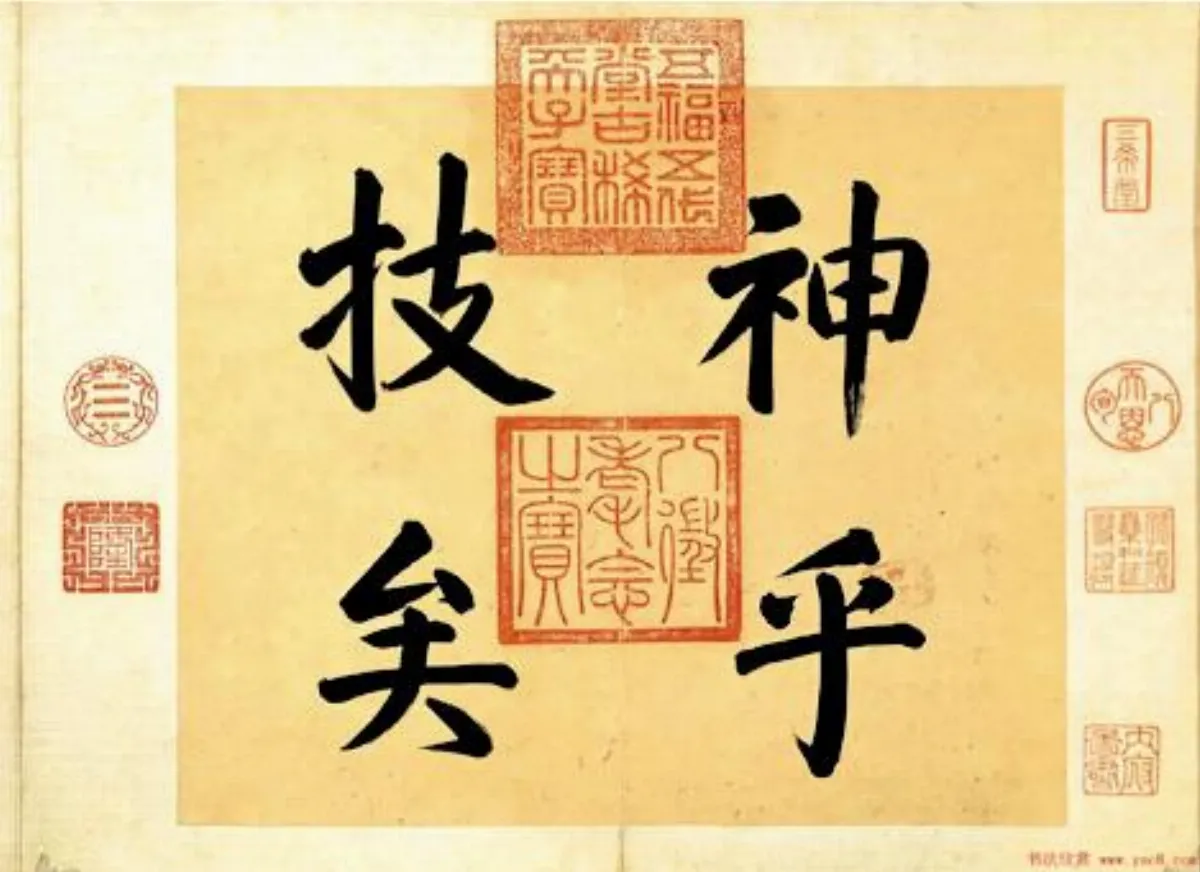 三希堂
天恩八旬
神乎
五福五代
堂古稀
天子寶
八徵
耄念
之寶
技矣
隆
书法欣赏 www.yac8.com